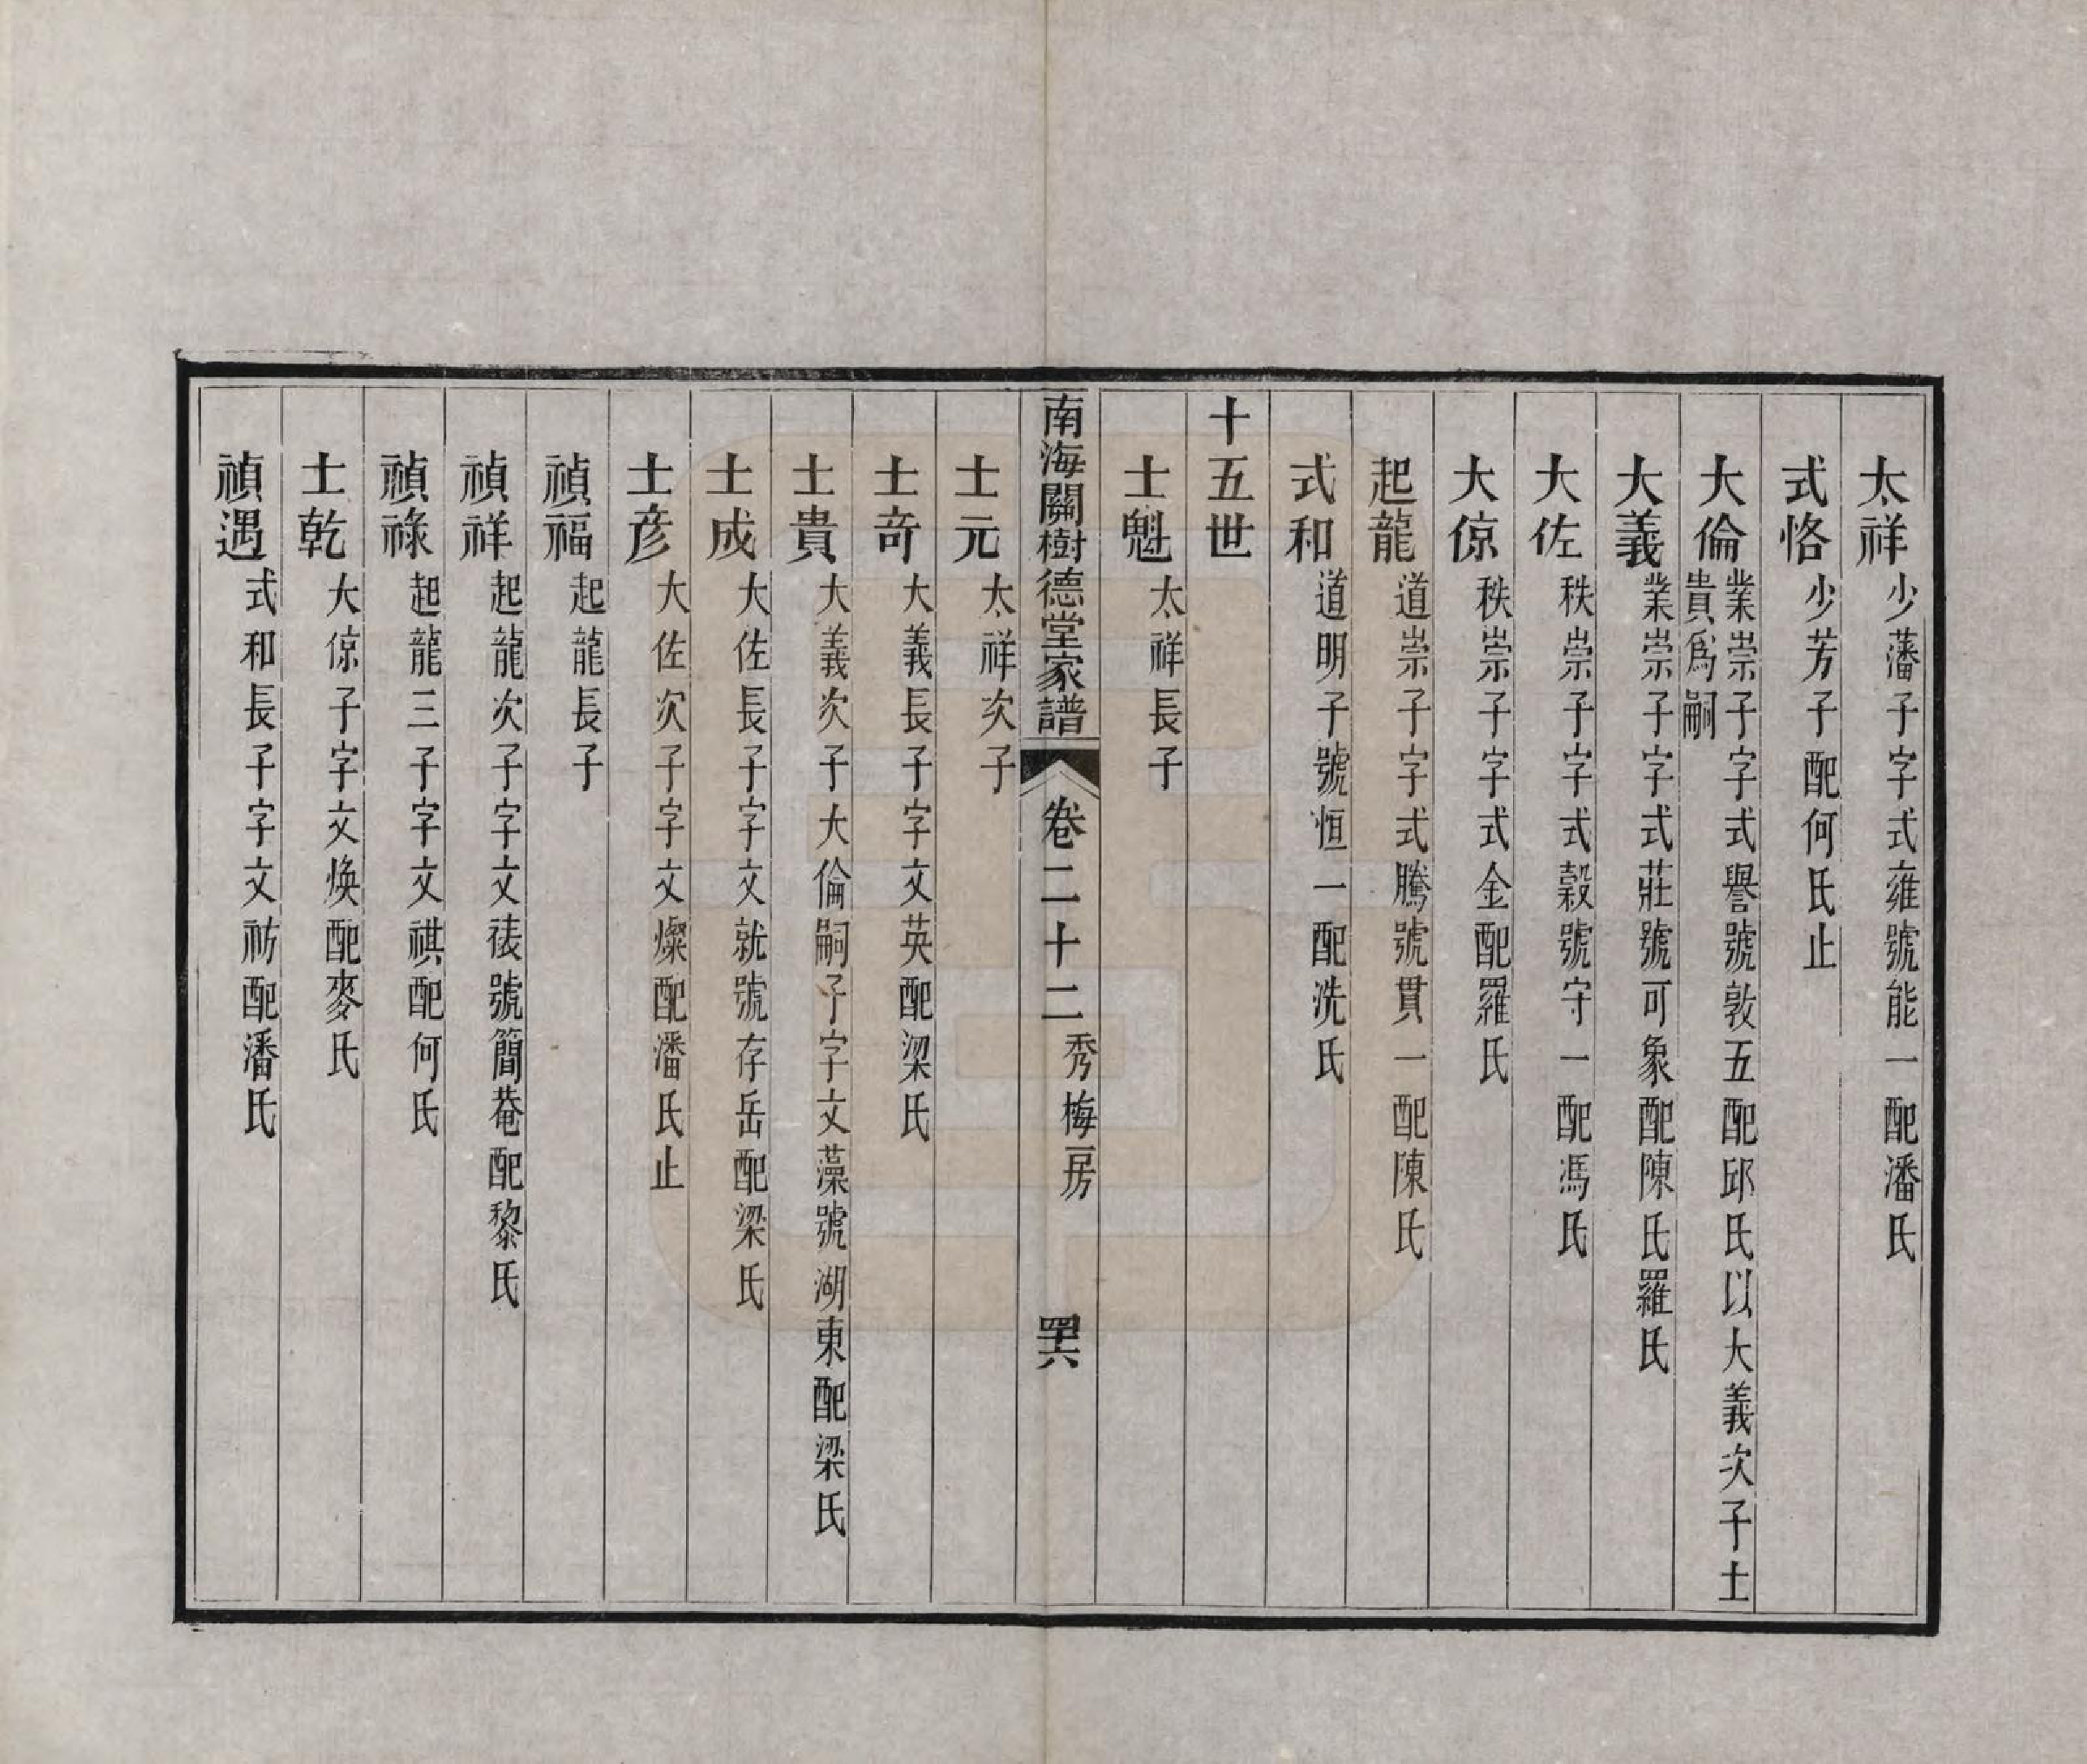 太祥 少藩子字式雍號能一配潘氏
式恪 少芳子配何氏止
大倫 業崇子字式譽號敦五配邱氏以大義次子士
貴爲嗣
大義 業崇子字式莊號可象配陳氏羅氏
大佐 秩崇子字式穀號守一配馮氏
大倞 秩崇子字式金配羅氏
起龍 道崇子字式騰號貫一配陳氏
式和 道明子號恒一配洗氏
十五世
士魁 太祥長子
南海關樹德堂家譜 卷二十二 秀梅房 四十六
士元 太祥次子
士奇 大義長子字文英配梁氏
士貴 大義次子大倫嗣子字文藻號湖東配梁氏
士成 大佐長子字文就號存岳配梁氏
士彦 大佐次子字文燦配潘氏止
禎福 起龍長子
禎祥 起龍次子字文䘵號簡菴配黎氏
禎祿 起龍三子字文祺配何氏
士乾 大倞子字文煥配麥氏
禎遇 式和長子字文祊配潘氏